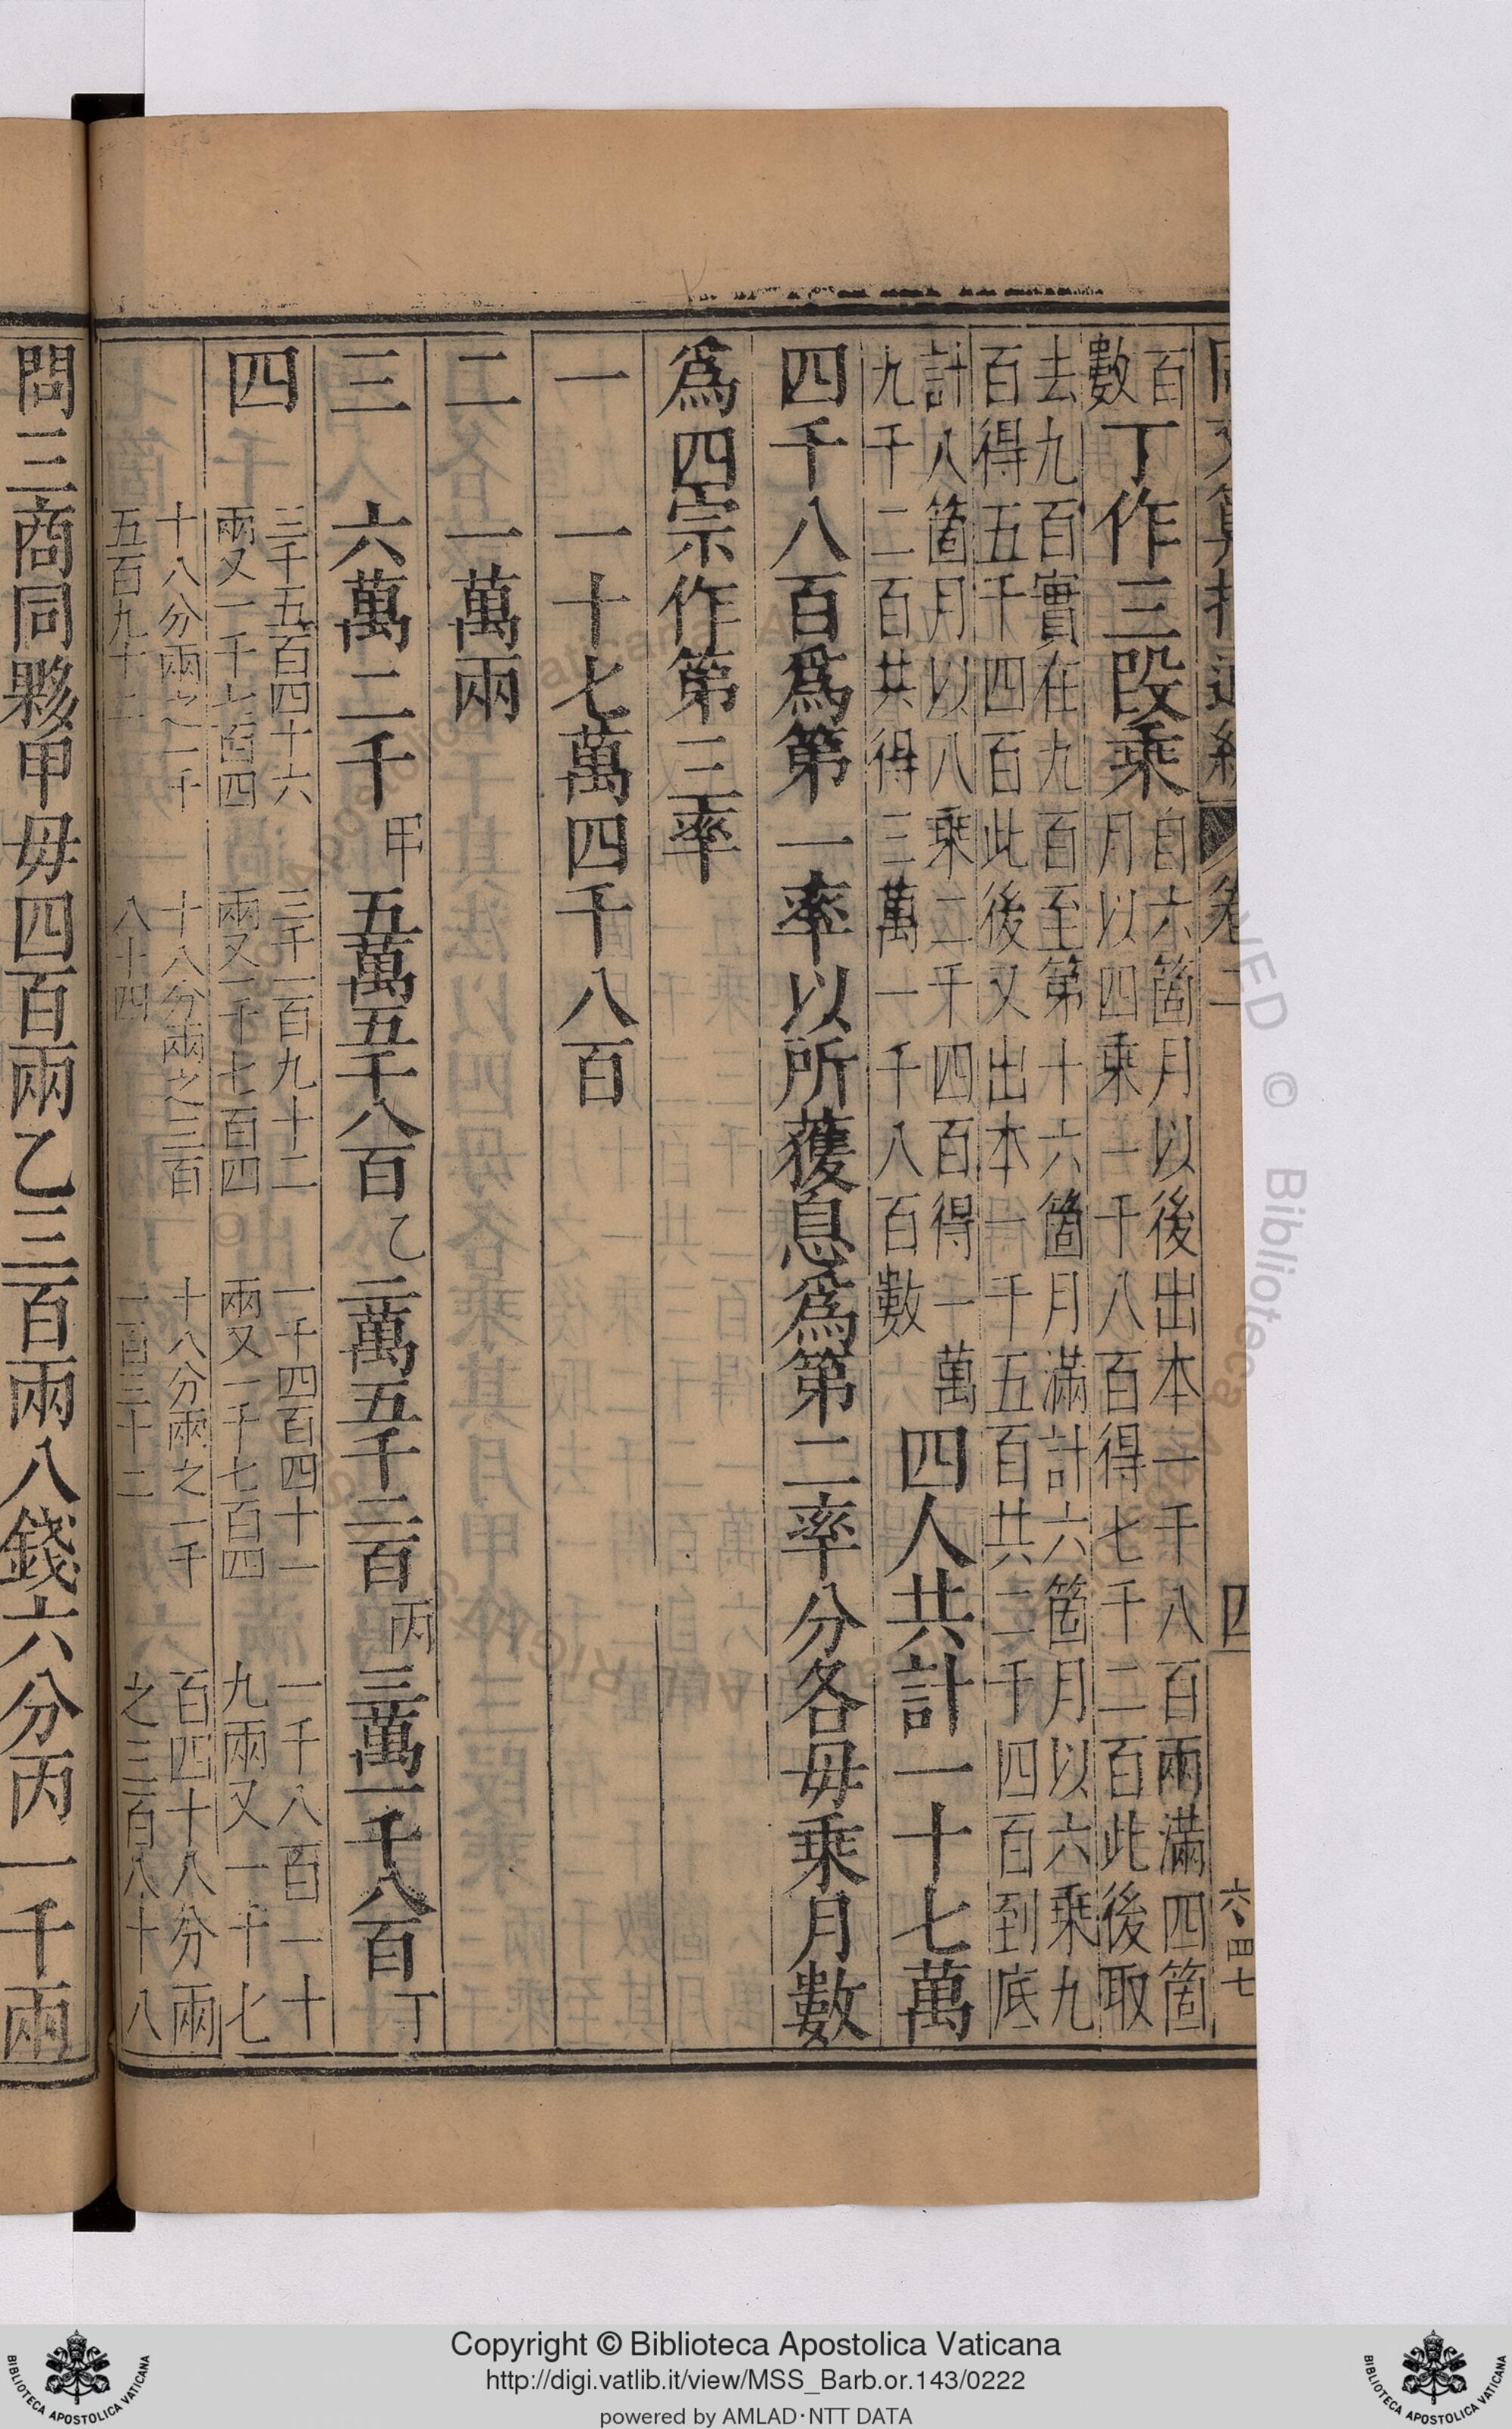 同文算指通編 卷二 四 六四七
百
數
丁作三段乘
自六箇月以後出本一千八百兩滿四箇
月以四乘一千八百得七千二百此後取
去九百實在九百至第十六箇月滿計六箇月以六乘九
百得五千四百此後又出本一千五百共二千四百到底
計八箇月以八乘二千四百得一萬
九千二百共得三萬一千八百數
四人共計一十七萬
四千八百爲第一率以所獲息爲第二率分各毋乘月數
爲四宗作第三率
一 一十七萬四千八百
二 一萬兩
三 六萬二千甲 五萬五千八百乙 二萬五千二百丙 三萬一千八百丁
四
三千五百四十六
兩又一千七百四
十八分兩之一千
五百九十二
三千一百九十二
兩又一千七百四
十八分兩之三百
八十四
一千四百四十一
兩又一千七百四
十八分兩之一千
一百三十二
一千八百一十
九兩又一千七
百四十八分兩
之三百八十八
問三商同夥甲毋四百兩乙三百兩八錢六分丙一千兩
Copyright © Biblioteca Apostolica Vaticana
http://digi.vatlib.it/view/MSS_Barb.or.143/0222
powered by AMLAD·NTT DATA
BIBLIOTECA APOSTOLICA VATICANA
BIBLIOTECA APOSTOLICA VATICANA